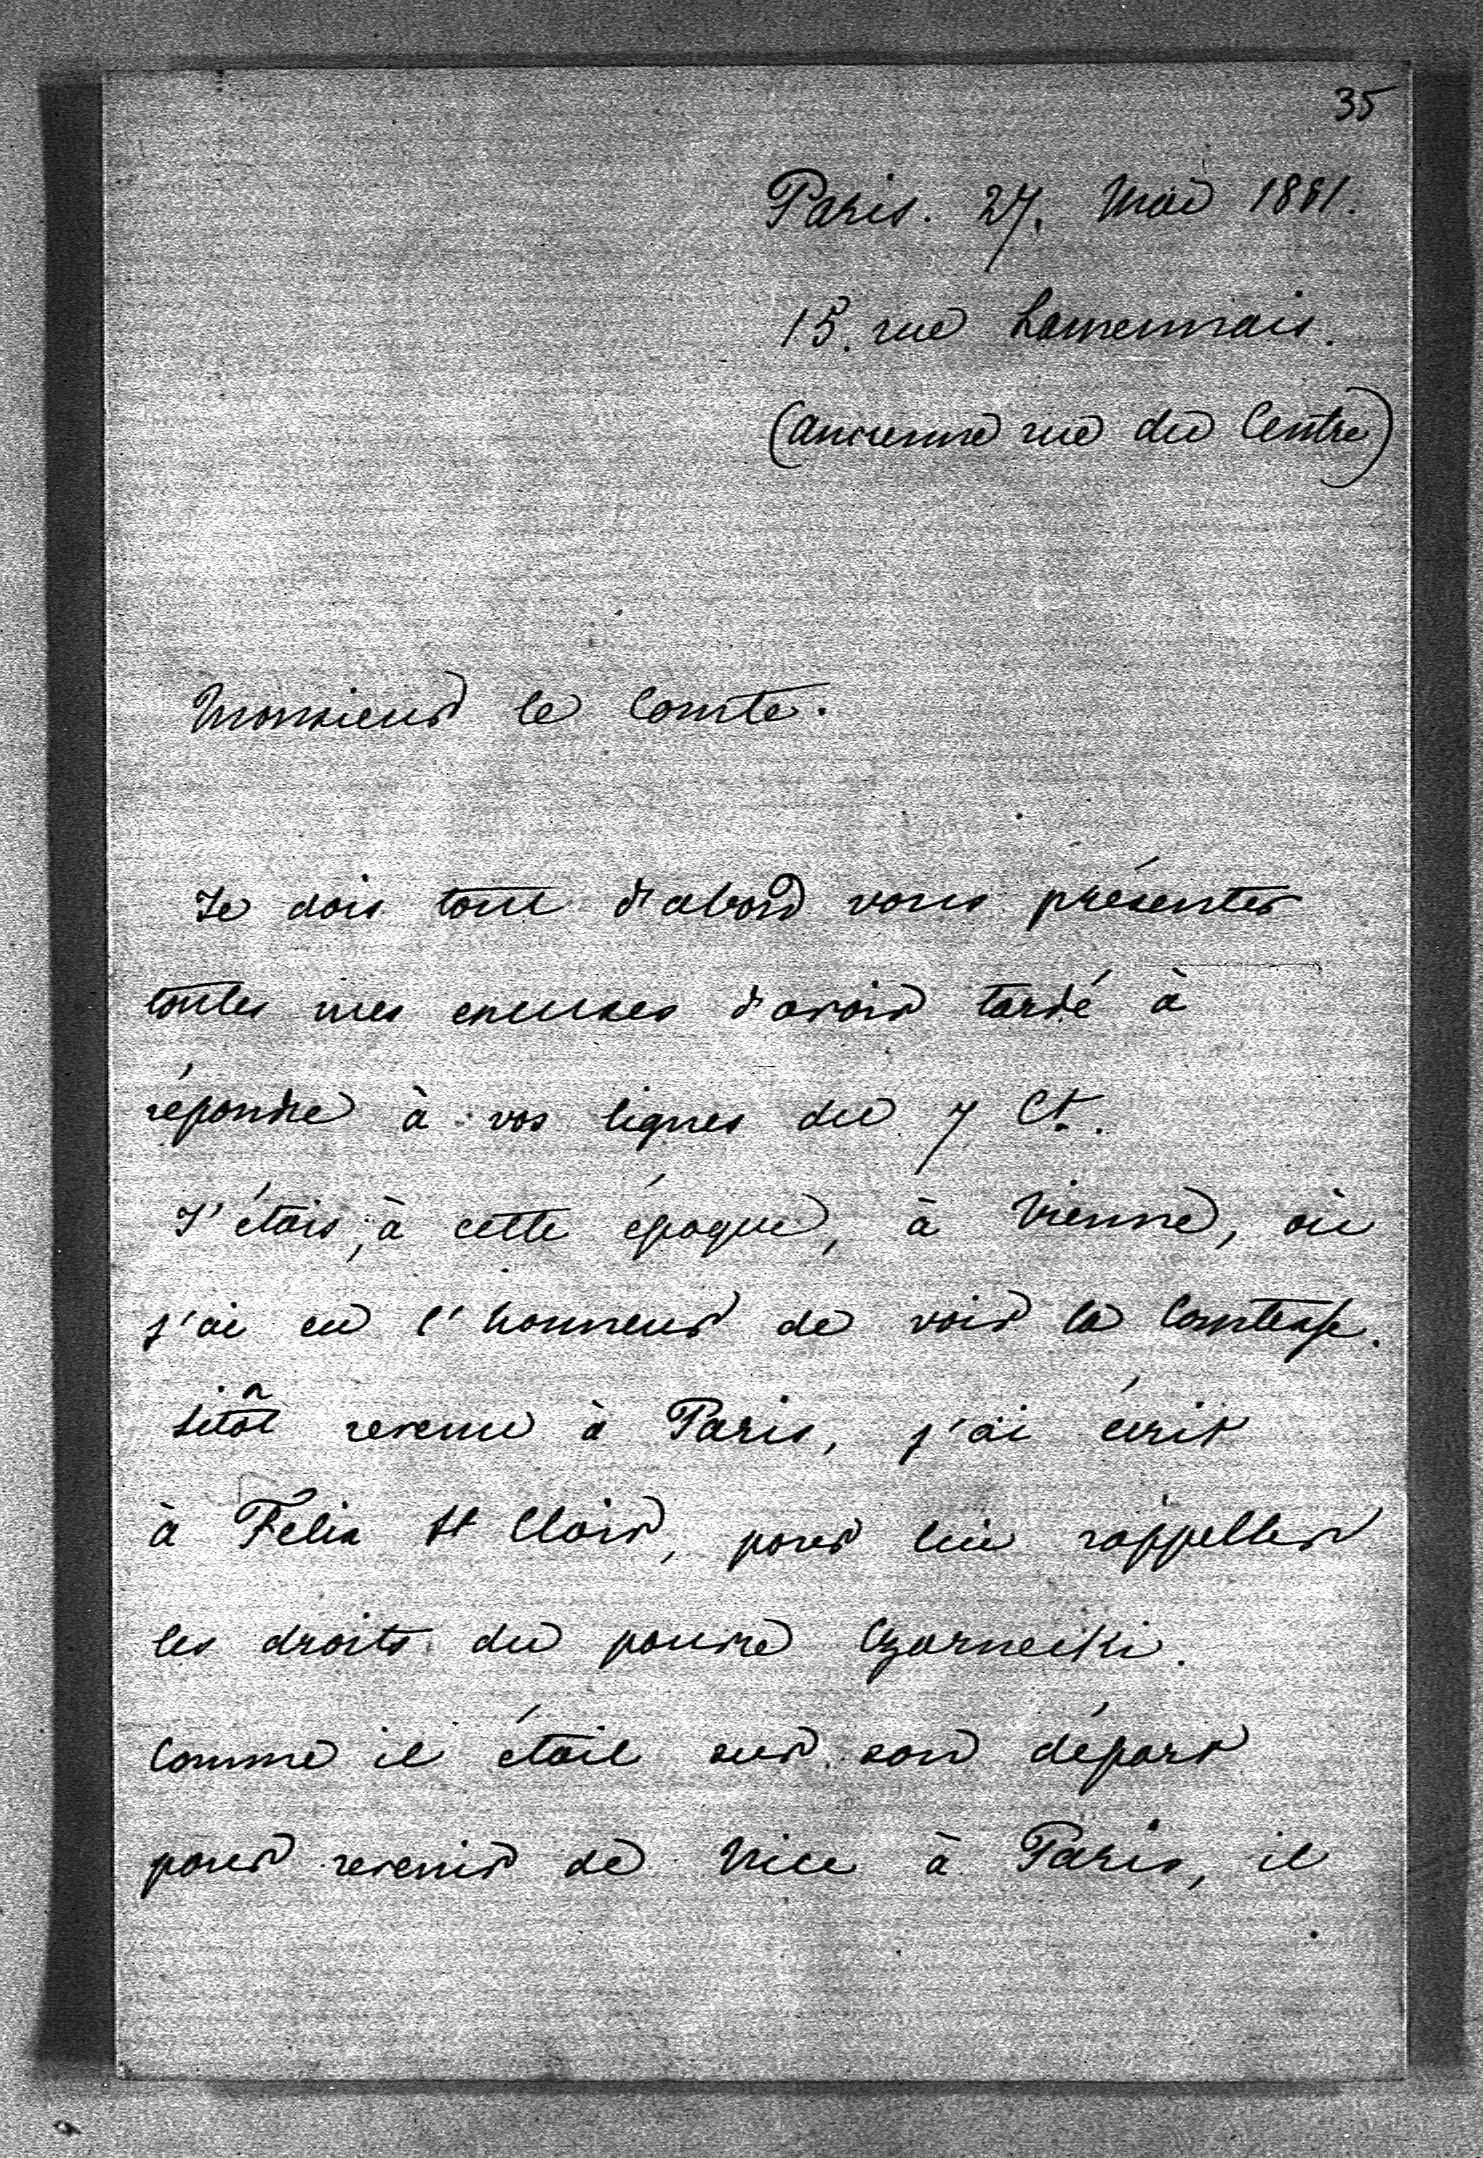 35
Paris. 27. Mai 1881.
15. rue Lamennais.
(ancienne rue du Centre)
Monsieur le Comte.
Je dois tout d'abord vous présenter
toutes mes excuses d'avoir tardé à
répondre à vos lignes du 7 Ct.
J'étais, à cette époque, à Vienne, où
j'ai eu l'honneur de voir la Comtesse.
sitôt revenu à Paris, j'ai écrit
à Félix St Clair, pour lui rappeller
les droits du pauvre Czarnecki.
Comme il était sur son départ
pour revenir de Nice à Paris, il